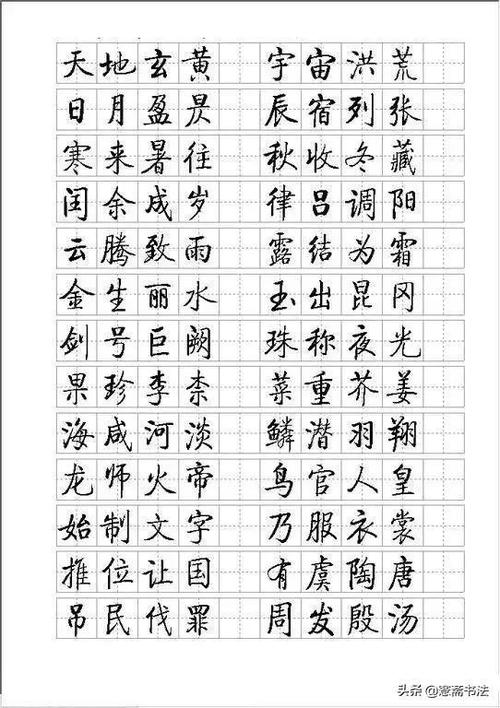 天地玄黄 宇宙洪荒
日月盈昃 辰宿列张
寒来暑往 秋收冬藏
闰余成岁 律吕调阳
云腾致雨 露结为霜
金生丽水 玉出昆冈
剑号巨阙 珠称夜光
果珍李柰 菜重芥姜
海咸河淡 鳞潜羽翔
龙师火帝 鸟官人皇
始制文字 乃服衣裳
推位让国 有虞陶唐
吊民伐罪 周发殷汤
头条@憲斋书法